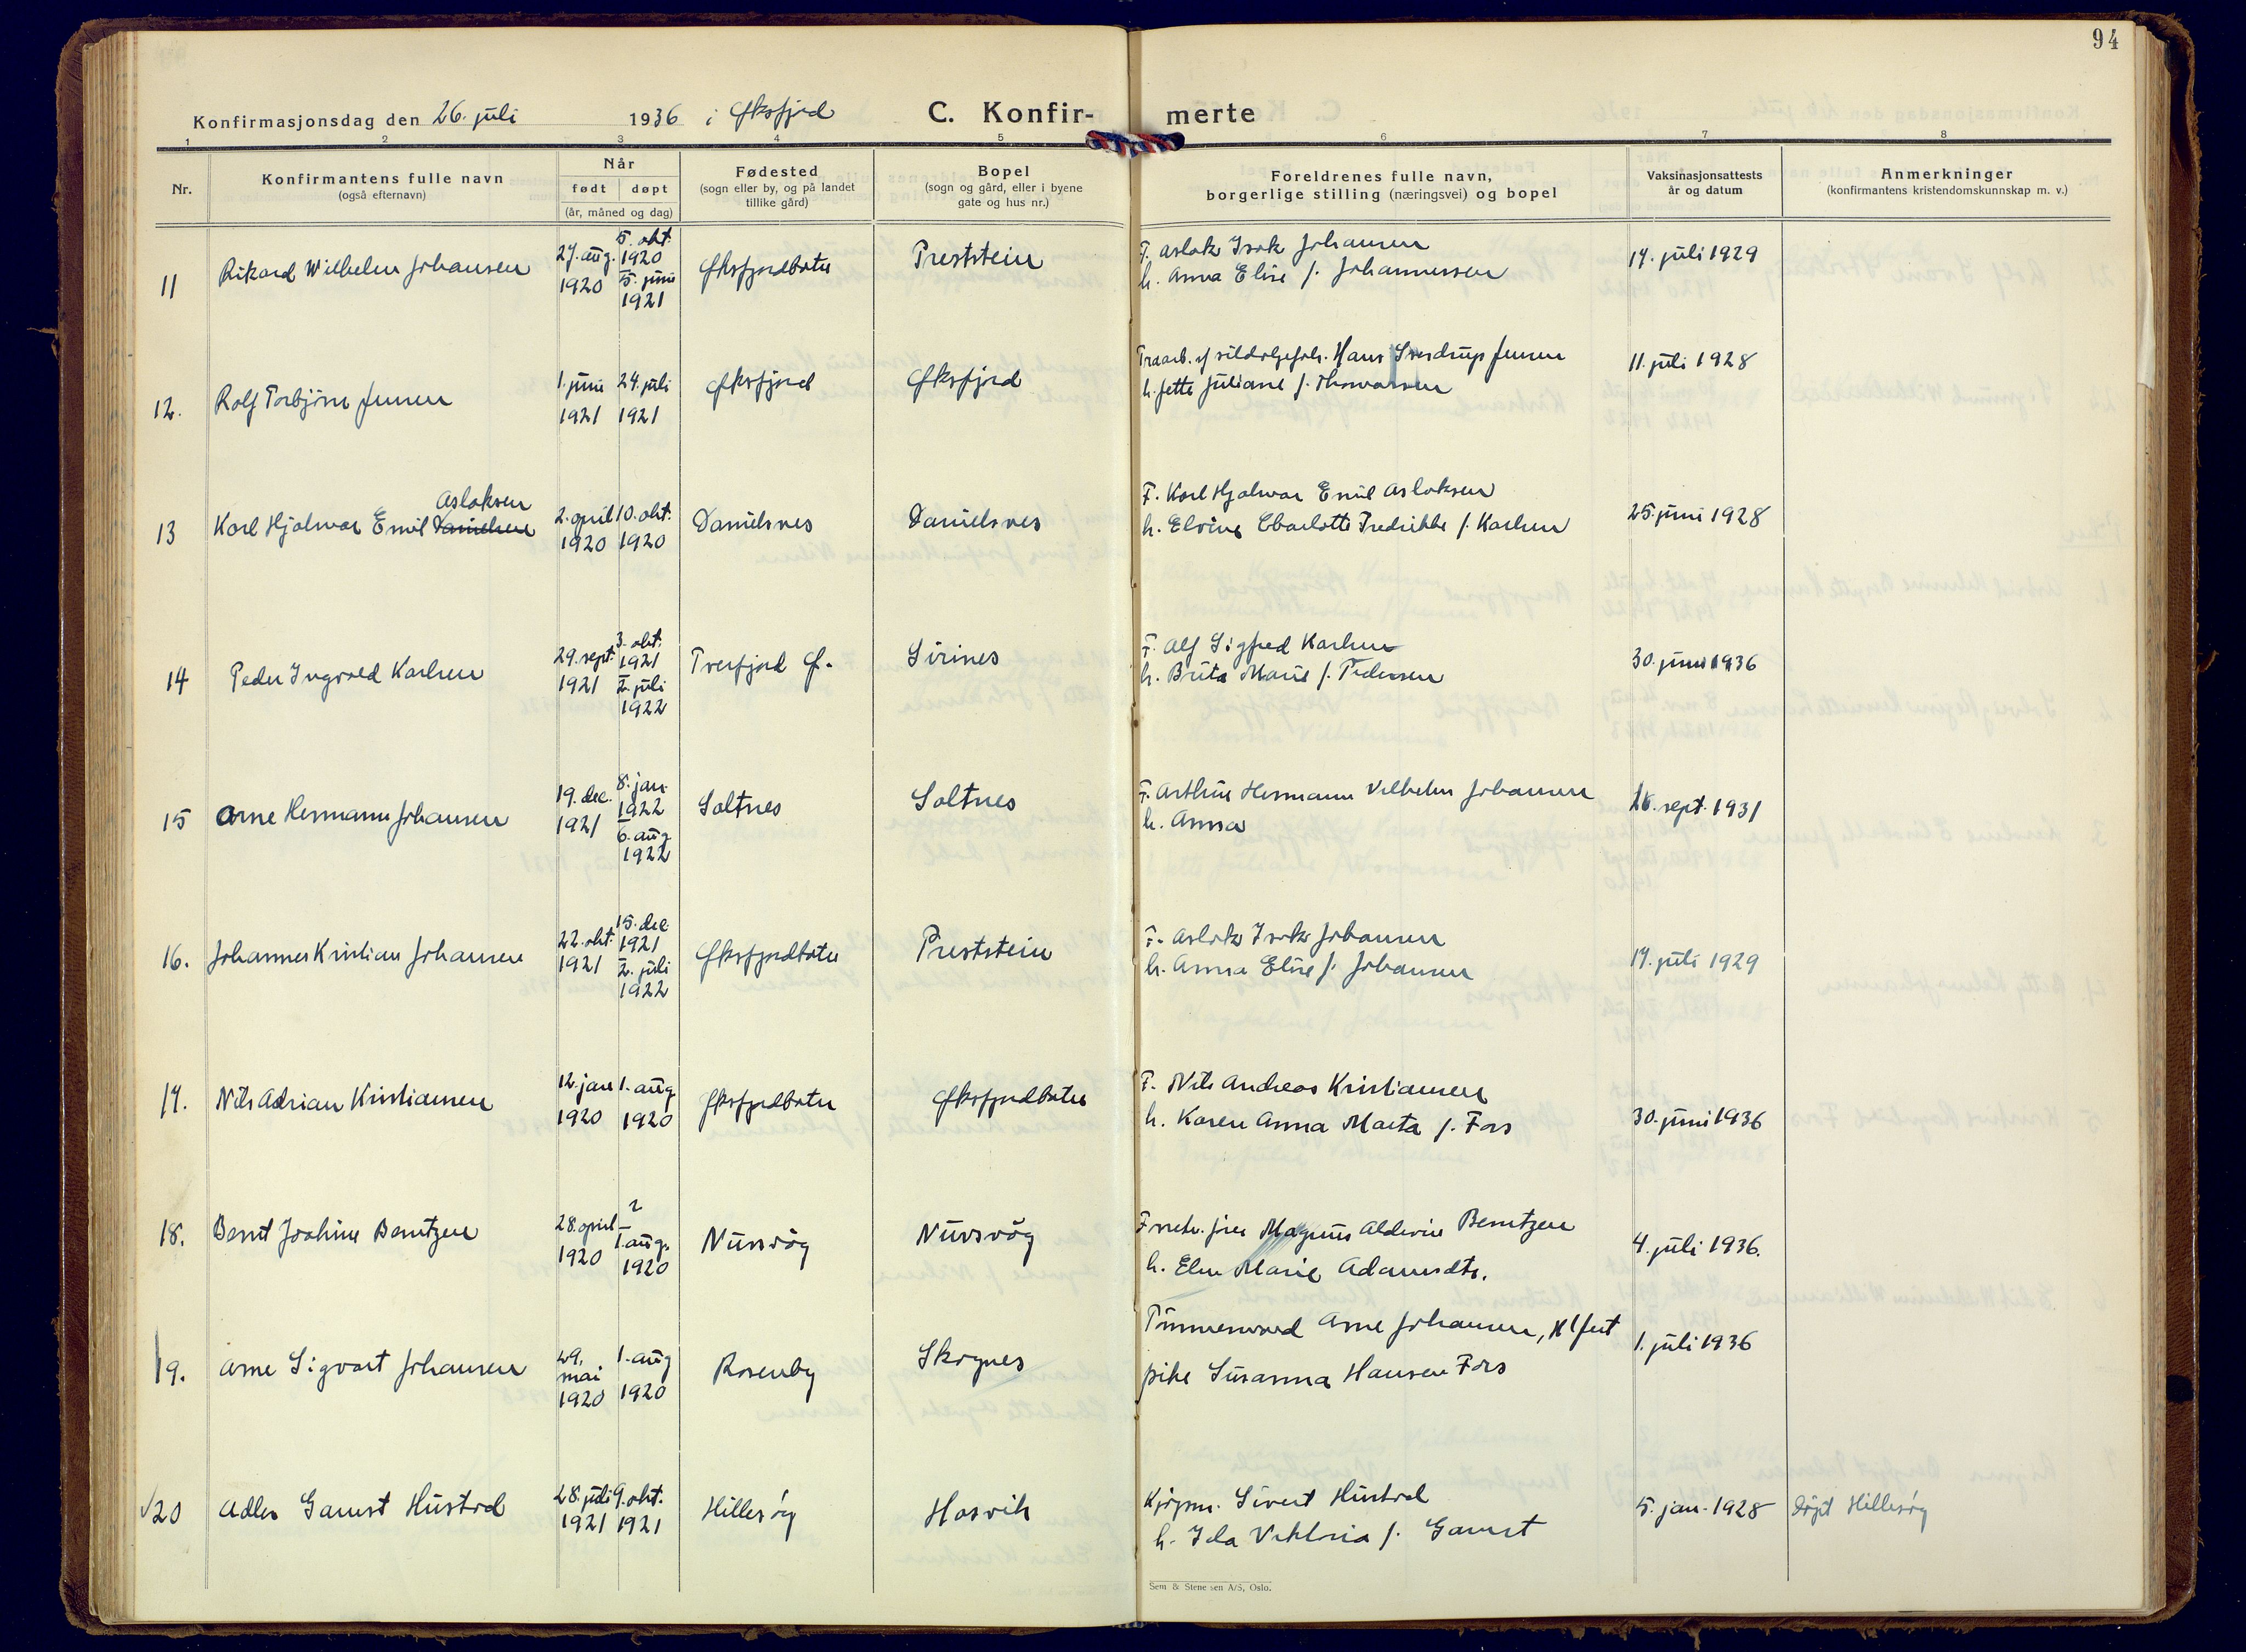 94
Konfirmasjonsdag den 26. juli 1936 i Øksfjord C. Konfir- merte
1 2 3 4 5 6 7 8
Nr.
Konfirmantens fulle navn
(også efternavn)
Når
født døpt
(år, måned og dag)
Fødested
(sogn eller by, og på landet
tillike gård)
Bopel
(sogn og gård, eller i byene
gate og hus nr.)
Foreldrenes fulle navn,
borgerlige stilling (næringsvei) og bopel
Vaksinasjonsattests
år og datum
Anmerkninger
(konfirmantens kristendomskunnskap m. v.)
11 Rikard Wilhelm Johansen
27. aug. 1920
5. okt. 1920
5. juni 1921
Øksfjordbotn
Preststein
F. Aslak Isak Johansen
h. Anna Elise f. Johannessen
17. juli 1929
12. Rolf Torbjørn Jensen
1. juni 1921
24. juli 1921
Øksfjord
Øksfjord
Hans Sverdrup Jensen
h. Jette Juliane f. Thomassen
11. juli 1928
13 Karl Hjalmar Emil Danielsen Aslaksen
2. april 1920
10. okt. 1920
Danielsnes
Danielsnes
F. Karl Hjalmar Emil Aslaksen
h. Elvine Charlotte Fredrikke f. Karlsen
25. juni 1928
14 Peder Ingvald Karlsen
29. sept. 1921
3. okt. 1921
2. juli 1922
Tverfjord Ø.
Sirines
F. Alf Sigfred Karlsen
h. Brita Marie f. Pedersen
30. juni 1936
15 Arne Hermann Johansen
19. dec. 1921
8. jan. 1922
6. aug 1922
Saltnes
Saltnes
F. Arthur Hermann Vilhelm Johansen
h. Anna
sept. 1931
16. Johannes Kristian Johansen
22. okt. 1921
15. dec 1921
2. juli 1922
Øksfjordbotn
Preststein
F. Aslak Isak Johansen
h. Anna Elise f. Johansen
17. juli 1929
17. Nils Adrian Kristiansen
12. jan 1920
1. aug 1920
Øksfjordbotn
Øksfjordbotn
F. Nils Andreas Kristiansen
h. Karen Anna Marta f. Fors
30. juni 1936
18. Bernt Joakim Berntzen
28. april 1920
?
1. aug. 1920
Nuvsvåg
Nuvsvåg
Magnus Aldevin Berntzen
h. Elen Marie Adamsdtr.
4. juli 1936.
19. Arne Sigvart Johansen
29. mai 1920
1. aug 1920
Rosenby
Skognes
Tømmermand Arne Johansen, H/fest
pike Susanna Hansen Fors
1. juli 1936
20 Adler Gamst Hustad
28. juli 1921
9. okt. 1921
Hillesøy
Hasvik
Kjøpm. Sivert Hustad
h. Ida Viktoria f. Gamst
5. jan. 1928
døpt Hillesøy
Sem & Stenersen A/S, Oslo.